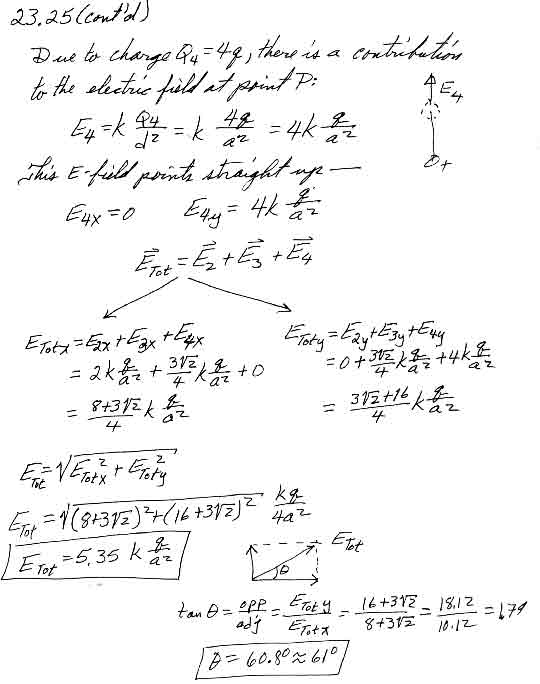 23.25 (cont'd)
Due to charge Q₄ = 4q, there is a contribution
to the electric field at point P:
E₄ = k Q₄/d² = k 4q/a² = 4k q/a²
E₄
+
This E-field points straight up —
E₄ₓ = 0 E₄y = 4k q/a²
E⃗Tot = E⃗₂ + E⃗₃ + E⃗₄
ETotx = E₂ₓ + E₃ₓ + E₄ₓ
= 2k q/a² + 3√2/4 k q/a² + 0
= (8+3√2)/4 k q/a²
EToty = E₂y + E₃y + E₄y
= 0 + 3√2/4 k q/a² + 4k q/a²
= (3√2+16)/4 k q/a²
ETot = √(ETotx² + EToty²)
ETot = √((8+3√2)² + (16+3√2)²) kq/4a²
ETot = 5.35 k q/a²
ETot
θ
tan θ = opp/adj = EToty/ETotx = (16+3√2)/(8+3√2) = 18.12/10.12 = 1.79
θ = 60.8° ≈ 61°